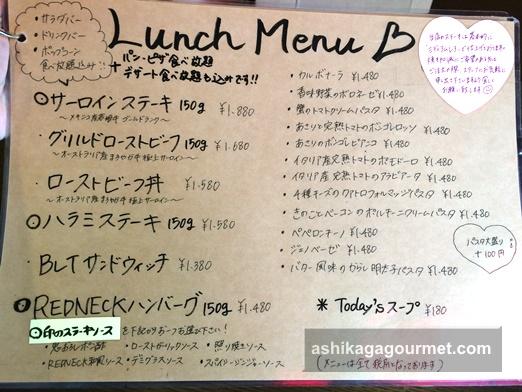 ・サラダバー
・ドリンクバー
・ポップコーン
食べ放題込み!!
Lunch Menu
+ パン・ピザ食べ放題
デザート食べ放題も込みです!!
サーロインステーキ 150g ¥1.880
・グリルドローストビーフ 150g ¥1.680
・ローストビーフ丼 ¥1.580
ハラミステーキ 150g ¥1.580
・BLTサンドウィッチ ¥1.380
REDNECKハンバーグ 150g ¥1.480
印のステーキソース を下記から一つお選び下さい!
・ローストガーリックソース ・照り焼きソース
・REDNECK和風ソース ・デミグラスソース ・スパイシージンジャーソース
・カルボナーラ ¥1.480
・香味野菜のボロネーゼ ¥1.480
・蟹のトマトクリームパスタ ¥1.480
・あさりと完熟トマトのボンゴレロッソ ¥1.480
・あさりのボンゴレビアンコ ¥1.480
・イタリア産完熟トマトのポモドーロ ¥1.480
・イタリア産完熟トマトのアラビアータ ¥1.480
・4種チーズのクアトロフォルマッジパスタ ¥1.480
・きのことベーコンのポルチーニクリームパスタ ¥1.480
・ペペロンチーノ ¥1.480
・ジェノベーゼ ¥1.480
・バター風味のからし明太子パスタ ¥1.480
パスタ大盛り
+100円
* Today'sスープ ¥180
(メニューは全て税別となっております)
ashikagagourmet.com